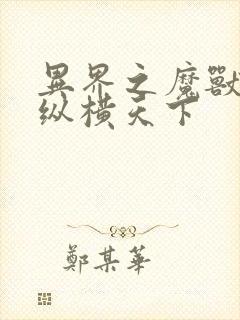 異界之魔獸
纵橫天下
鄭某華